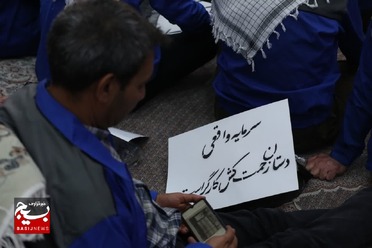 سرمایه واقعی
دستان زحمت کش کارگر است
خبرگزاری
بسیج
BASIJNEWS